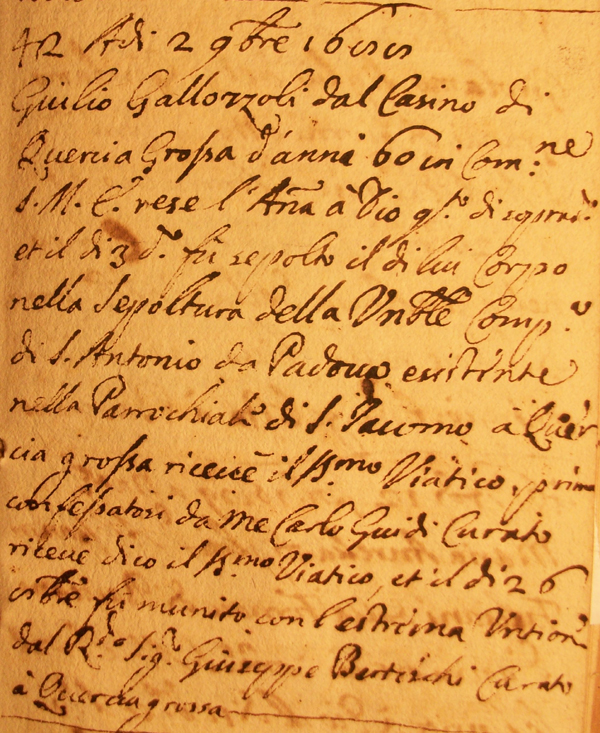 42 Adi 2 9bre 16
Giulio Gallozzoli dal Casino di
Quercia Grossa d'anni 60 in Com.ne
S. M. E. rese l'Aña à Dio gto di soprad.o
et il di 3 d.o fù sepolto il di lui Corpo
nella sepoltura della Vnble Comp.a
di S. Antonio da Padoua existente
nella Parrochiale di S. Jacomo à Quer
cia grossa riceuè il SS.mo Viatico, prima
confessatosi da me Carlo Guidi Curato
riceuè dico il SS.mo Viatico, et il di 26
8bre fù munito con l'estrema Vntione
dal R.do Sig.r Giuseppe Berteschi Curato
à Querciagrossa